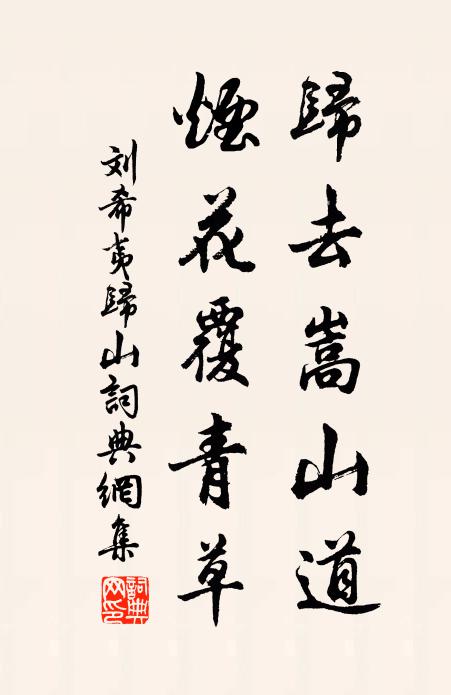 歸去嵩山道
煙花覆青草
刘希夷歸山詞典網集
詞典网印